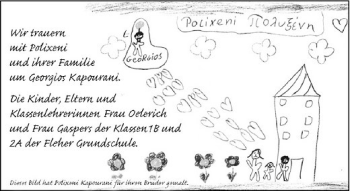 Polixeni Πολυξένη
GEORGIOS
Wir trauern
mit Polixeni
und ihrer Familie
um Georgios Kapourani.
Die Kinder, Eltern und
Klassenlehrerinnen Frau Oelerich
und Frau Gaspers der Klassen 1B und
2A der Fleher Grundschule.
Dieses Bild hat Polixeni Kapourani für ihren Bruder gemalt.